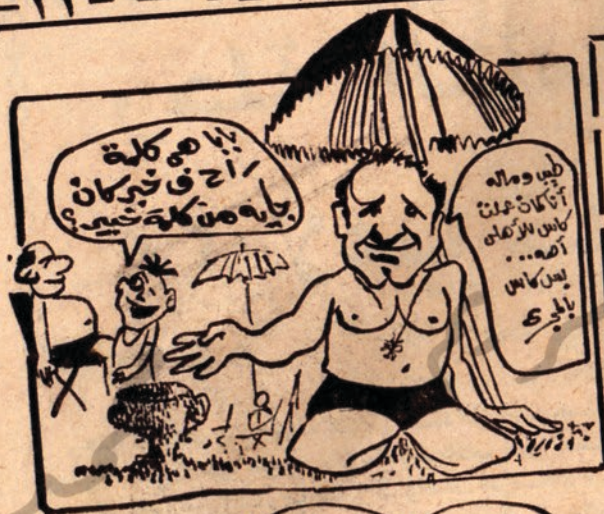 بابا هى كلمة
راح فى خبر كان
جايه من كلمة خيبر؟
طيب وماله
أنا كمان عملت
كاس للأهلى
أهه...
بس كاس
بالملح